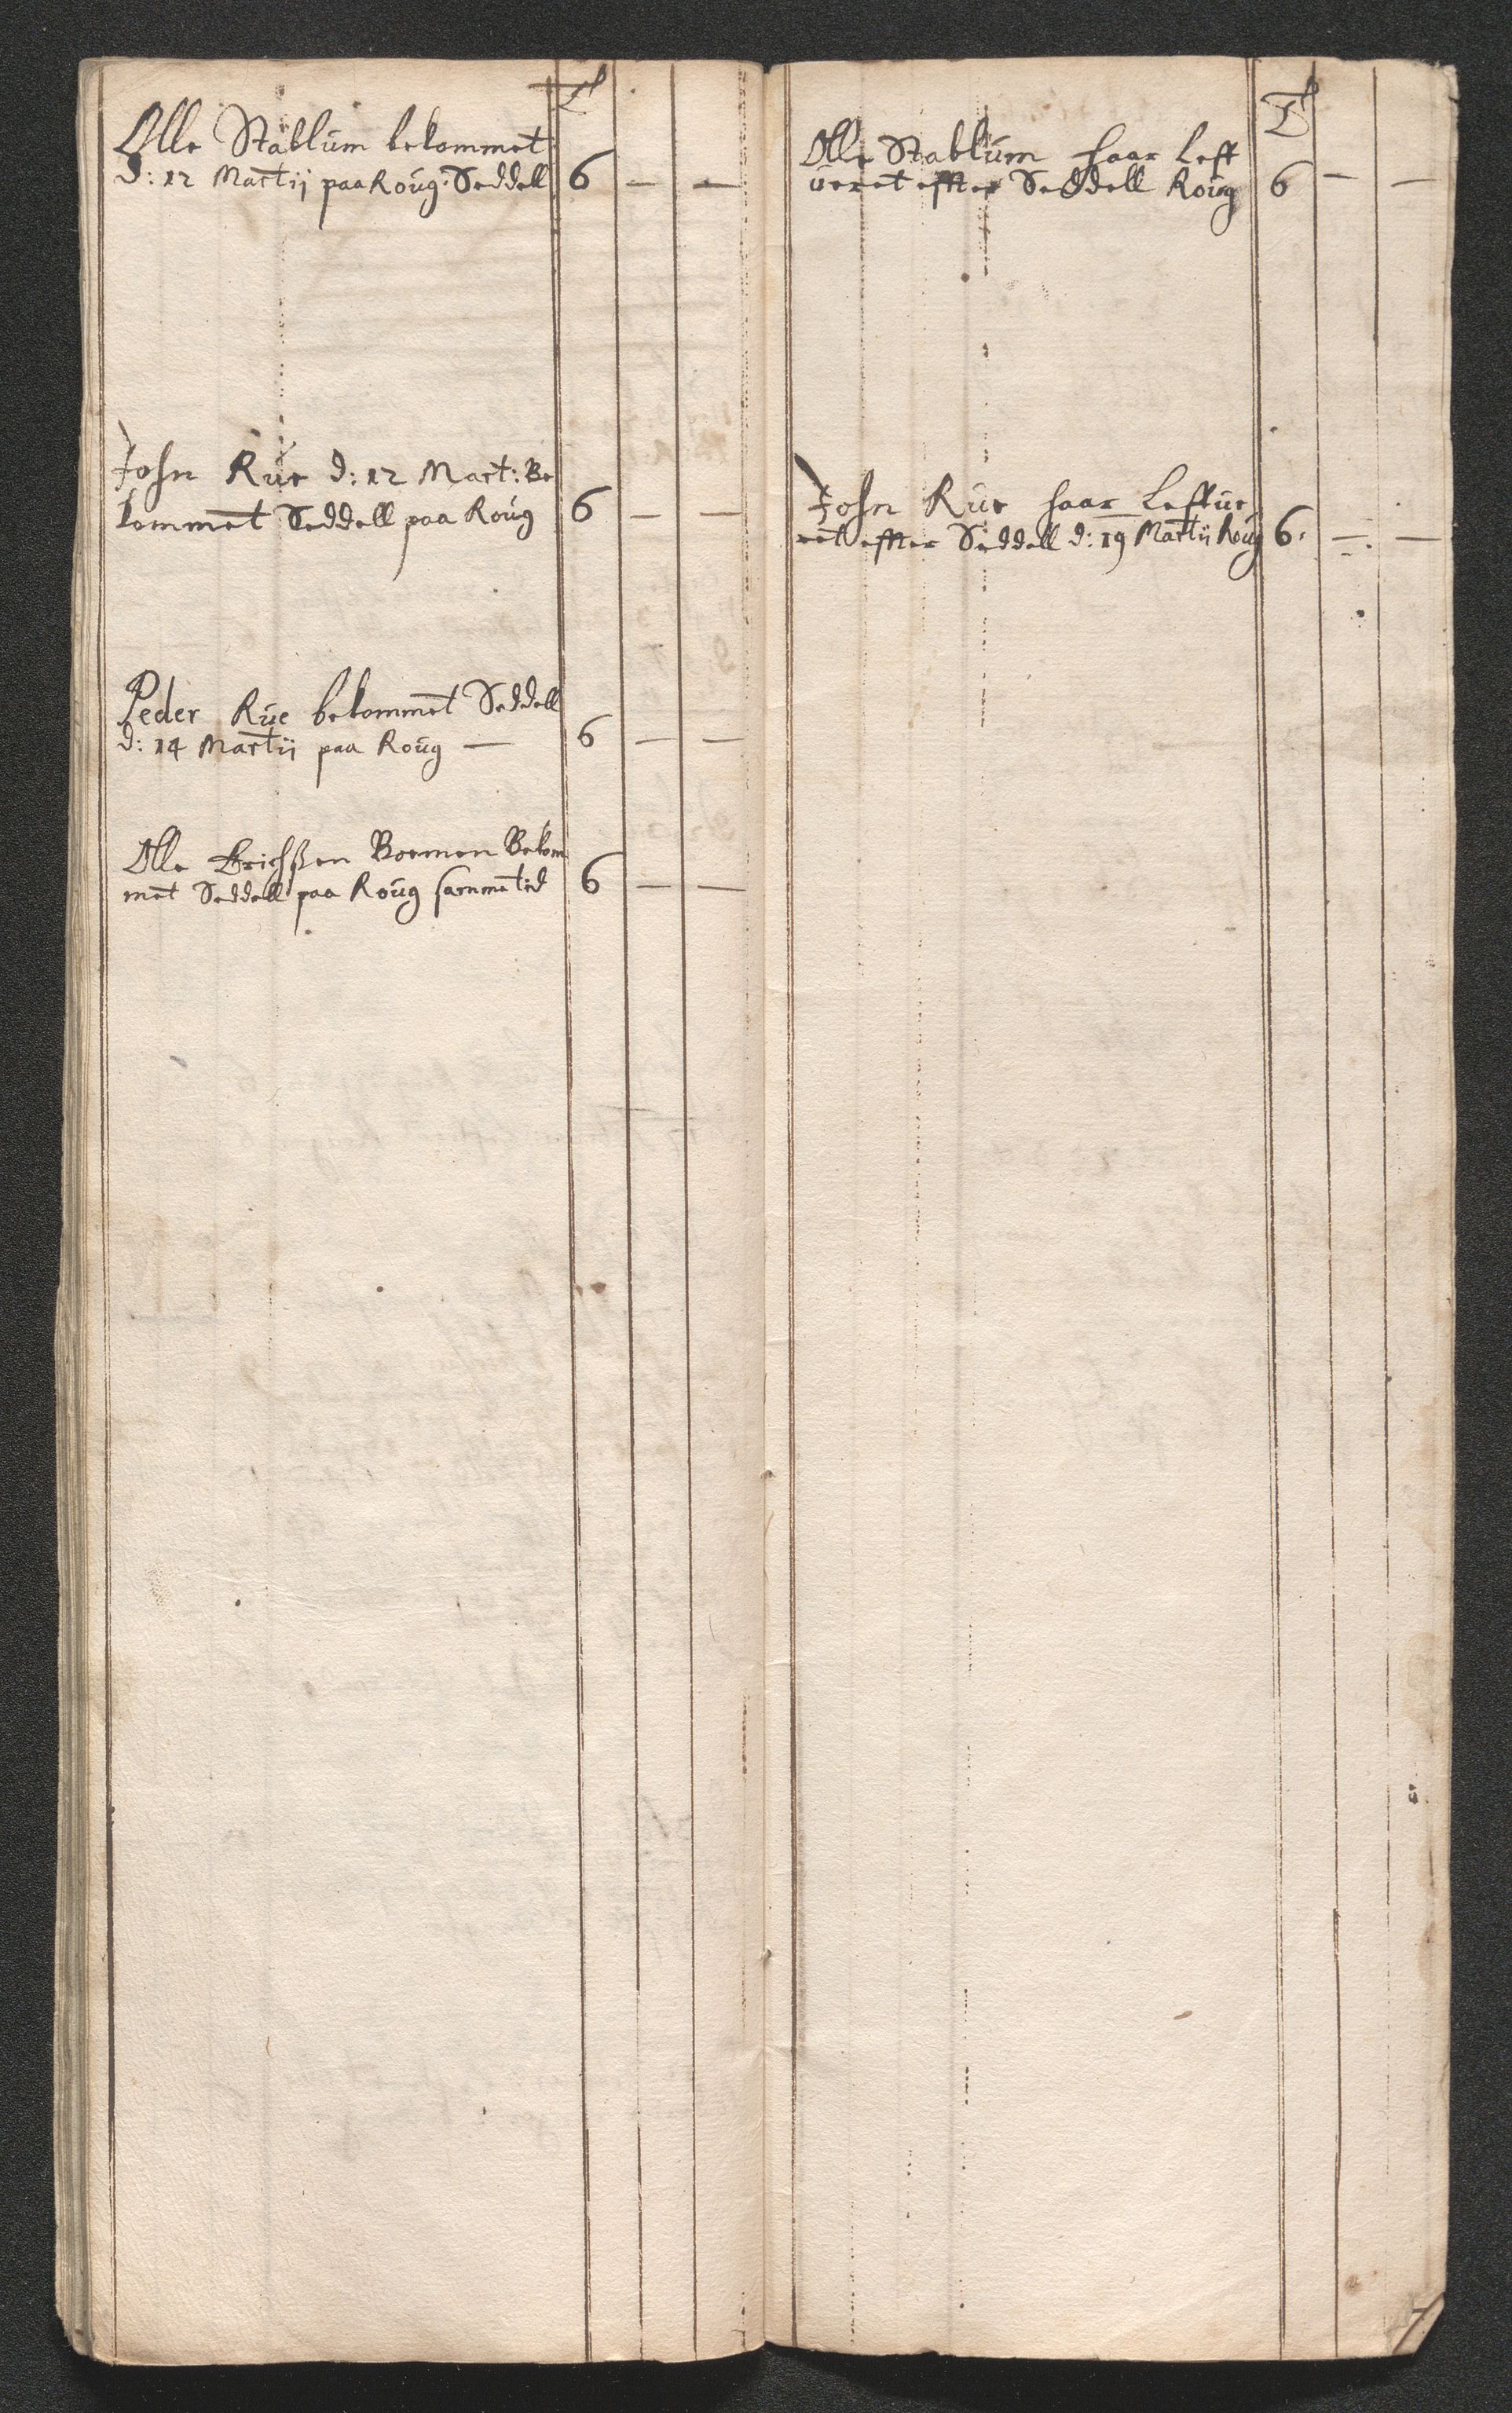 Tl
Olle Stablum bekommet
d: 12 Martij paa Roug Seddell 6 — —
John Rue d: 12 Mart: Be
kommet Seddell paa Roug 6 — —
Peder Rue bekommet Seddell
d: 14 Martii paa Roug — 6 — —
Olle Erichßen Boemen Bekom
met Seddell paa Roug samme tid 6 — —
Tl
Olle Stablum haar Leff
ueret effter Seddell Roug 6 — —
John Rue haar Leffue
ret effter Seddell d: 19 Martii Roug 6 — —